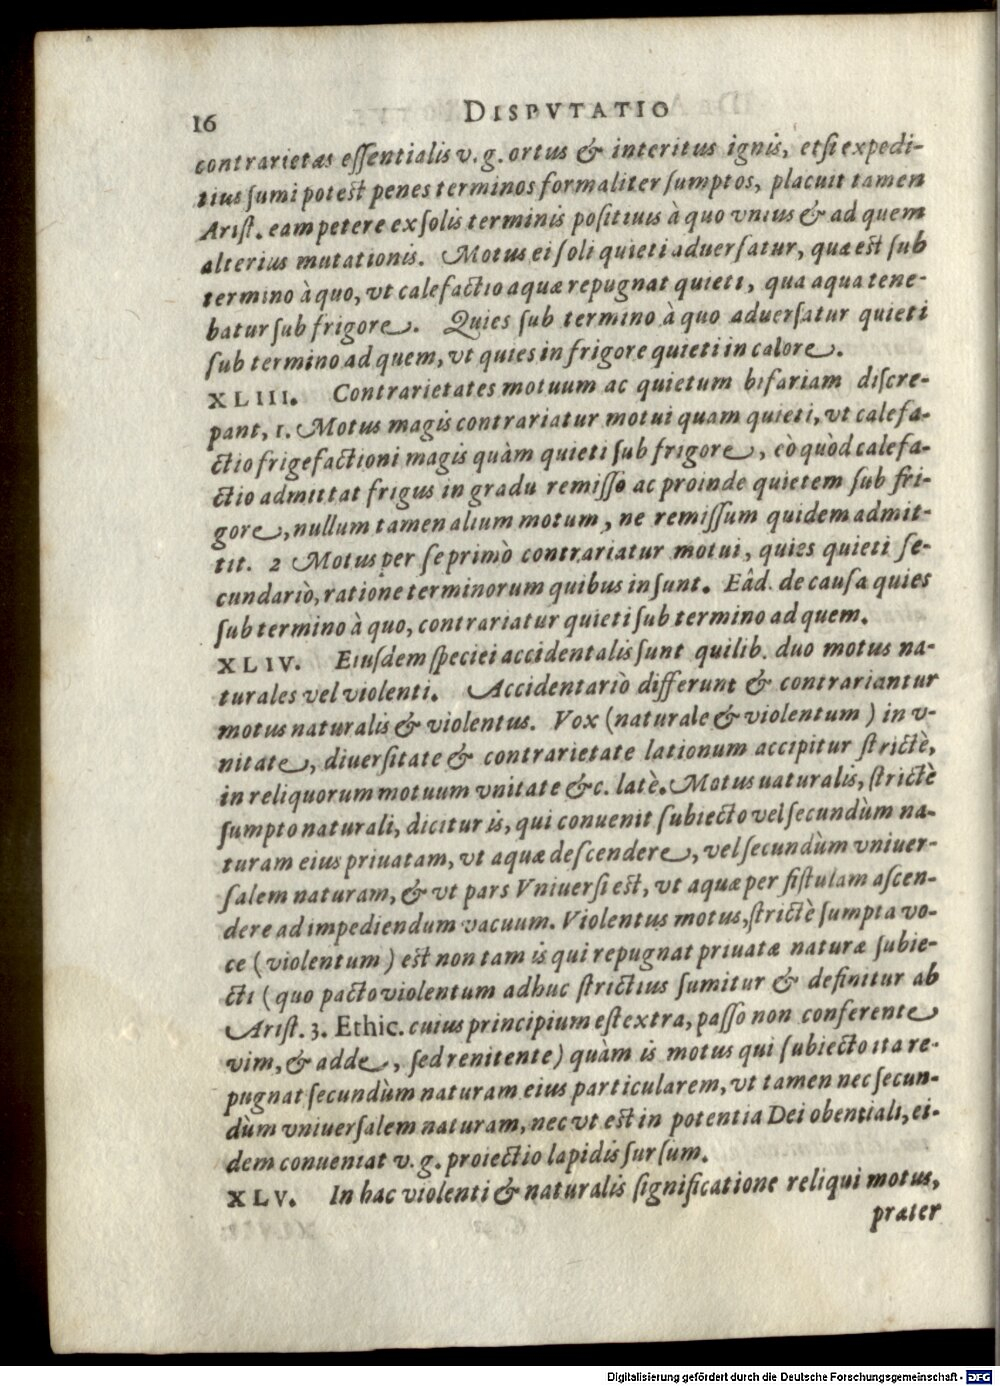 16 DISPVTATIO
contrarietas essentialis v. g. ortus & interitus ignis, etsi expedi-
tius sumi potest penes terminos formaliter sumptos, placuit tamen
Arist. eam petere ex solis terminis positiuis à quo vnius & ad quem
alterius mutationis. Motus ei soli quieti aduersatur, quæ est sub
termino à quo, vt calefactio aquæ repugnat quieti, qua aqua tene-
batur sub frigore. Quies sub termino à quo aduersatur quieti
sub termino ad quem, vt quies in frigore quieti in calore.
XLIII. Contrarietates motuum ac quietum bifariam discre-
pant, 1. Motus magis contrariatur motui quam quieti, vt calefa-
ctio frigefactioni magis quàm quieti sub frigore, eò quòd calefa-
ctio admittat frigus in gradu remisso ac proinde quietem sub fri-
gore, nullum tamen alium motum, ne remissum quidem admit-
tit. 2 Motus per se primò contrariatur motui, quies quieti se-
cundariò, ratione terminorum quibus insunt. Eâd. de causa quies
sub termino à quo, contrariatur quieti sub termino ad quem.
XLIV. Eiusdem speciei accidentalis sunt quilib. duo motus na-
turales vel violenti. Accidentariò differunt & contrariantur
motus naturalis & violentus. Vox (naturale & violentum) in v-
nitate, diuersitate & contrarietate lationum accipitur strictè,
in reliquorum motuum vnitate &c. latè. Motus uaturalis, strictè
sumpto naturali, dicitur is, qui conuenit subiecto vel secundùm na-
turam eius priuatam, vt aquæ descendere, vel secundùm vniuer-
salem naturam, & vt pars Vniuersi est, vt aquæ per fistulam ascen-
dere ad impediendum vacuum. Violentus motus, strictè sumpta vo-
ce (violentum) est non tam is qui repugnat priuatæ naturæ subie-
cti (quo pacto violentum adhuc strictius sumitur & definitur ab
Arist. 3. Ethic. cuius principium est extra, passo non conferente
vim, & adde, sed renitente) quàm is motus qui subiecto ita re-
pugnat secundùm naturam eius particularem, vt tamen nec secun-
dùm vniuersalem naturam, nec vt est in potentia Dei obentiali, ei-
dem conueniat v. g. proiectio lapidis sursum.
XLV. In hac violenti & naturalis significatione reliqui motus,
præter
Digitalisierung gefördert durch die Deutsche Forschungsgemeinschaft - DFG